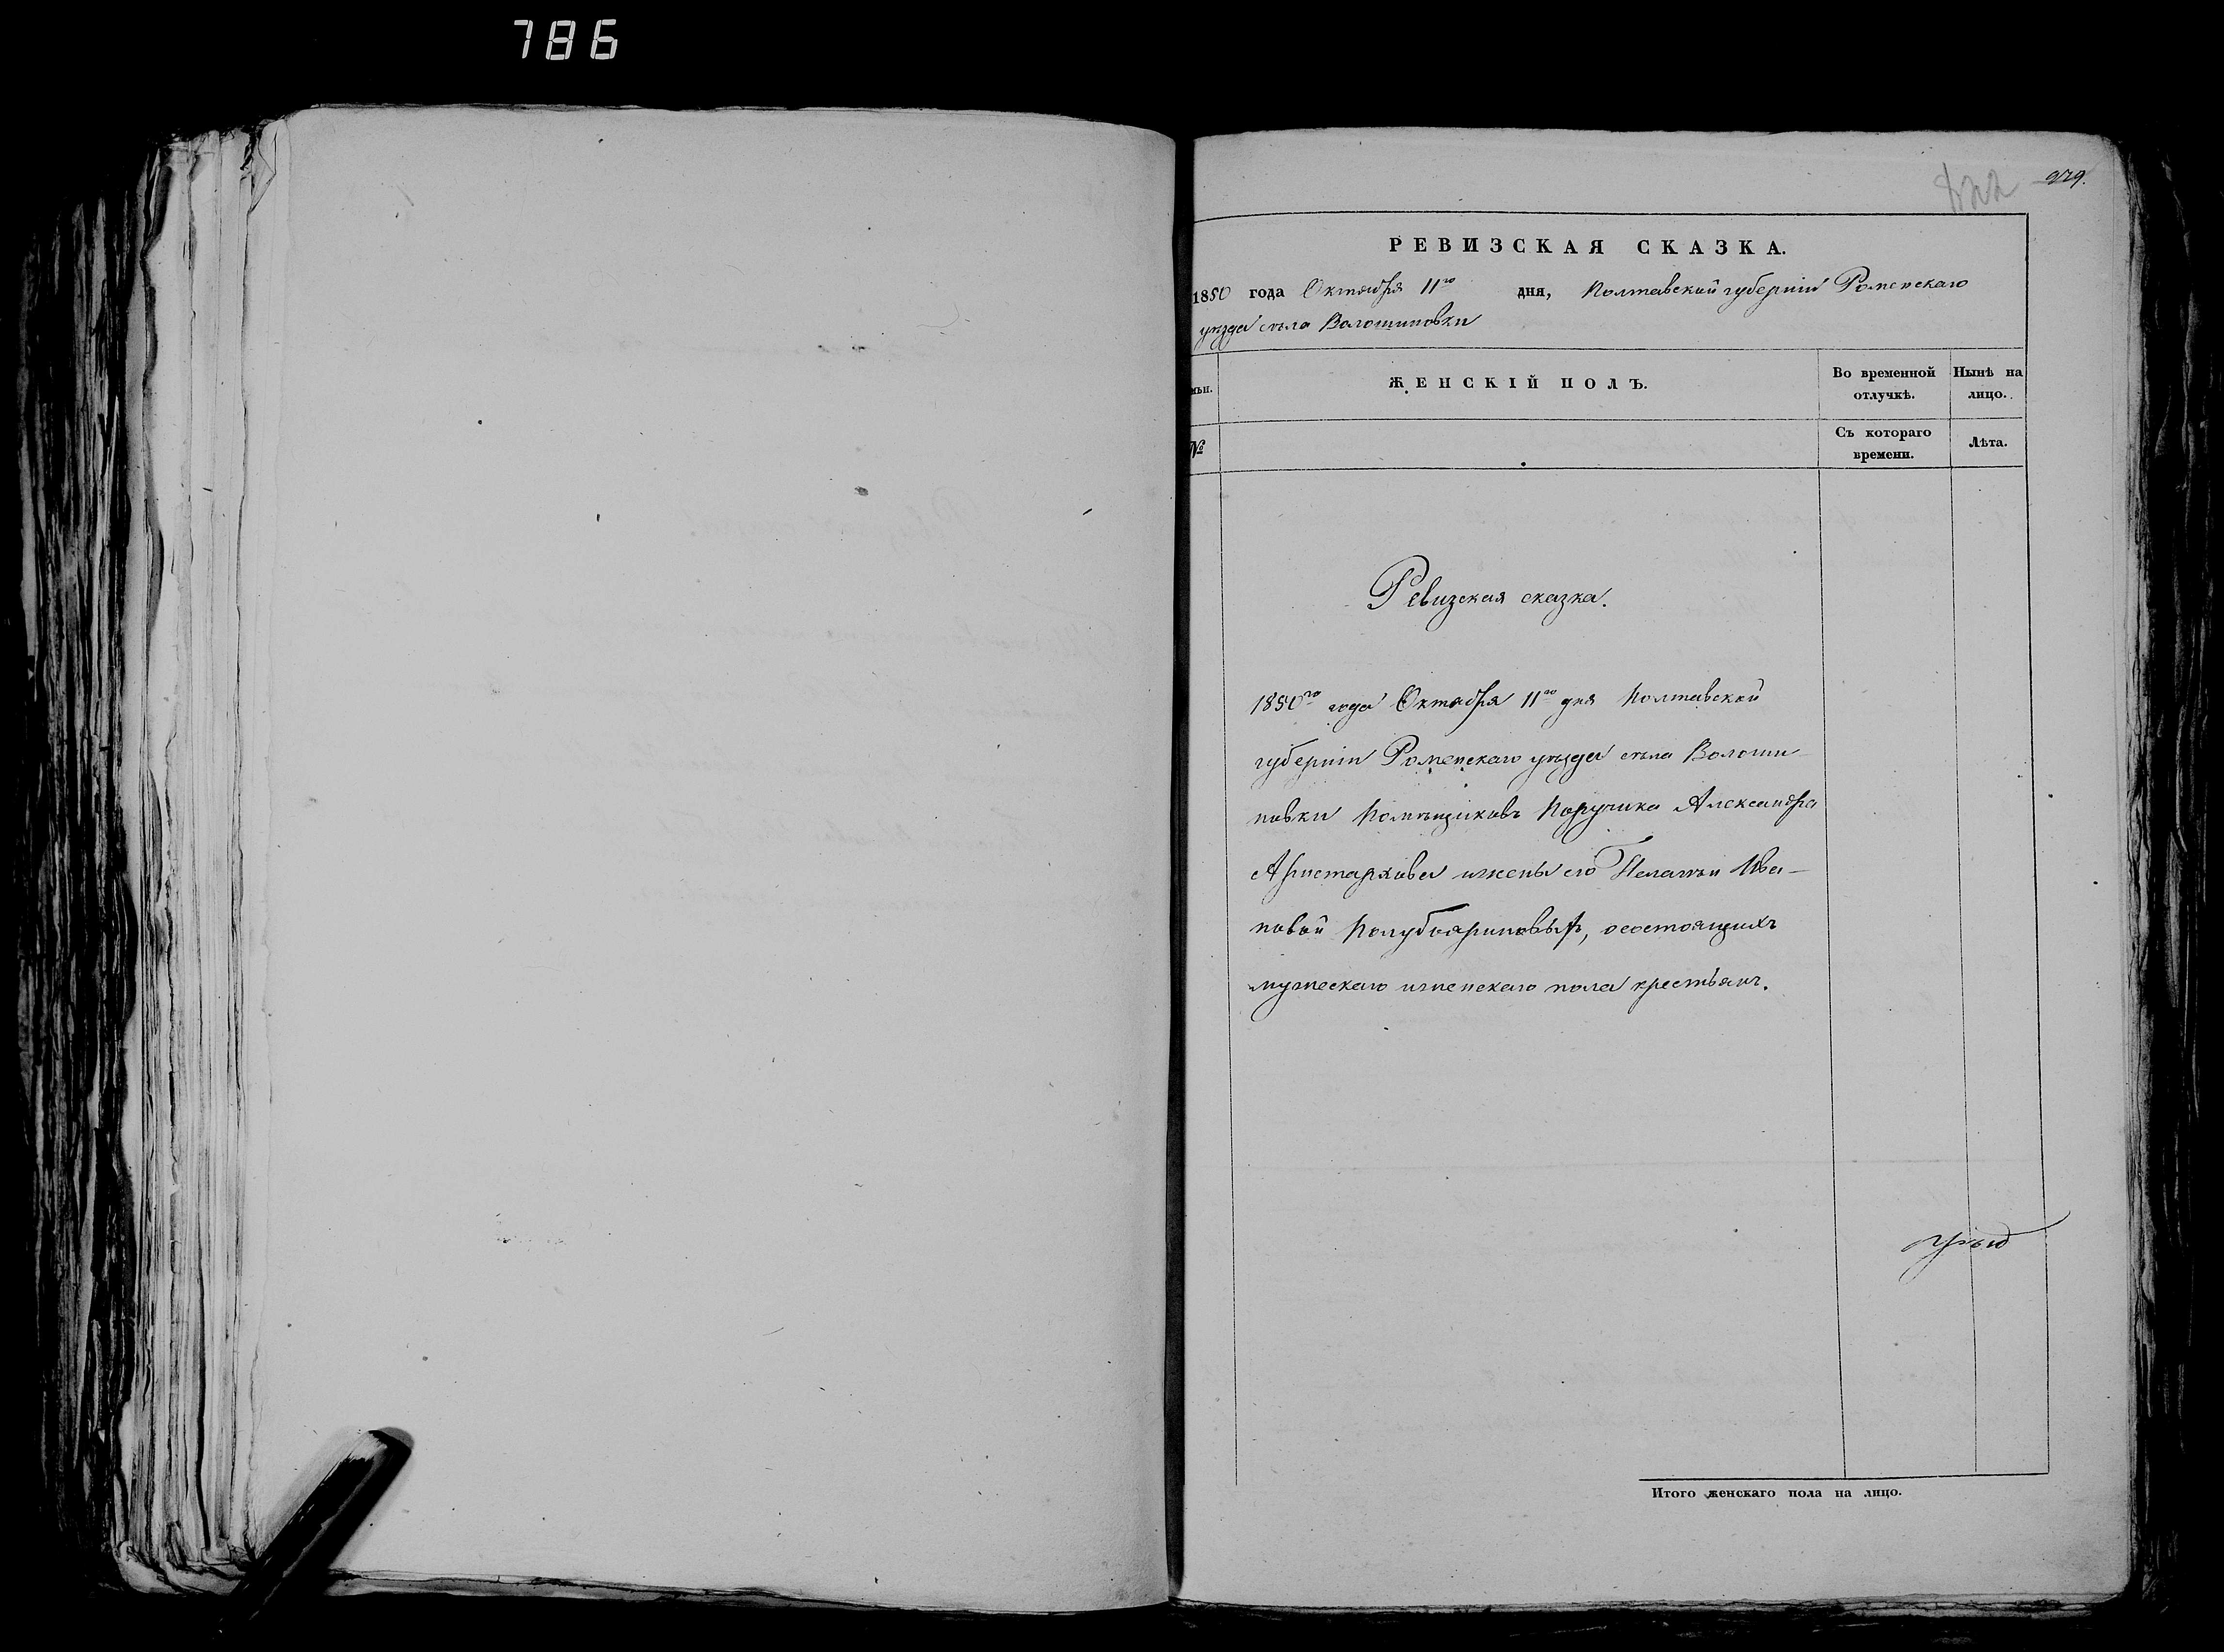 786
929.
РЕВИЗСКАЯ СКАЗКА.
1850 года Октября 11го дня, Полтавской губернии Роменскаго
уѣзда села Волошиновки
ЖЕНСКІЙ ПОЛЪ.
Во временной отлучкѣ.
Нынѣ на лицо.
№
Съ котораго времени.
Лѣта.
Ревизская сказка.
1850го года Октября 11го дня Полтавской
губерніи Роменскаго уѣзда села Волоши-
новки Помѣщиковъ Поручика Александра
Аристархова и жены его Пелагѣи Ива-
новой Полубояриновыхъ, о состоящихъ
мужескаго и женскаго пола крестьянъ.
Итого женскаго пола на лицо.